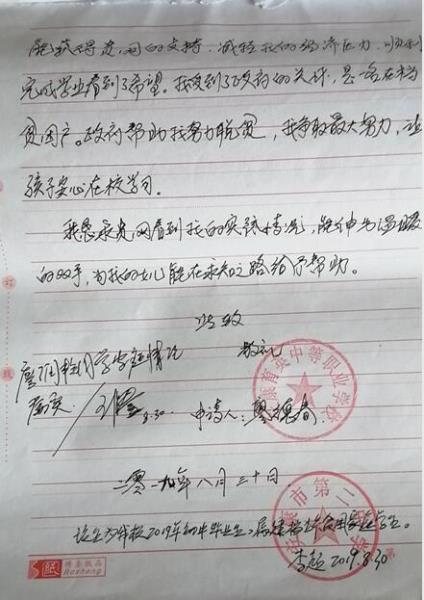 能获得贵网的支持,减轻我的经济压力,顺利
完成学业看到了希望。我受到了政府的关怀,是一名在档
贫困户。政府帮助我努力脱贫,我争取最大努力,让
孩子安心在校学习。
我恳求贵网看到我的实际情况,能伸出温暖
的双手,为我的女儿能在求知之路给予帮助。
此致
敬礼
同学家庭情况
属实
8.30
申请人:廖 春
育英中等职业学校
二零一九年八月三十日
市第二
该生为我校2019年初中毕业生,属建档立卡贫困家庭学生。
2019.8.30
Hesheng